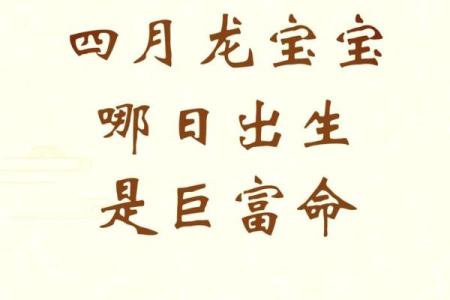 四月龙宝宝
哪日出生
是巨富命